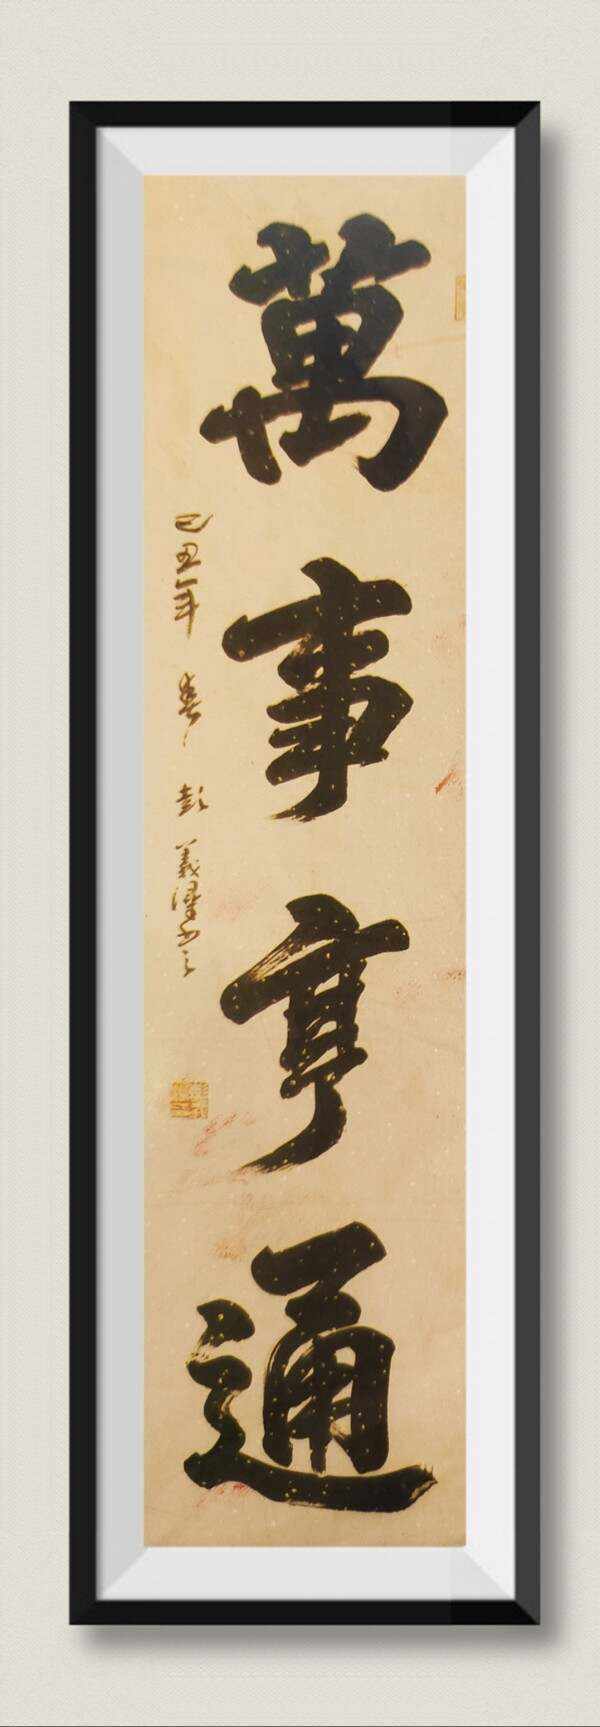 萬事亨通
己丑年 春 彭義澤書之